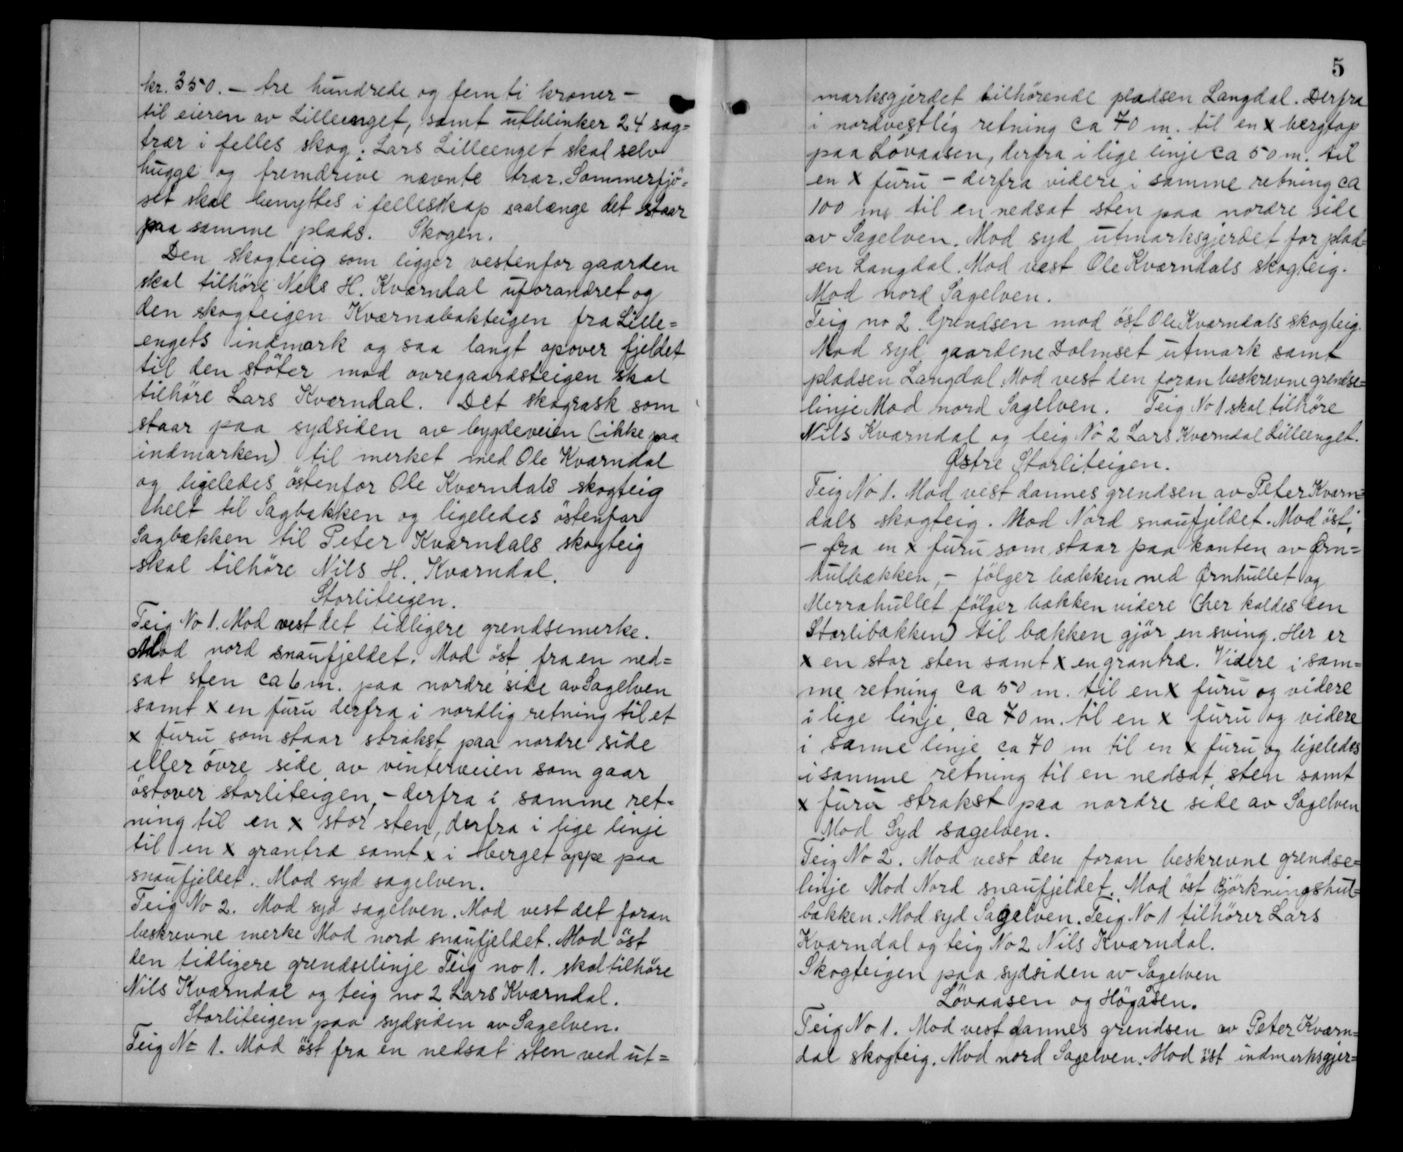 kr. 350.— tre hundrede og femti kroner —
til eieren av Lilleenget, samt utblinker 24 sag=
trær i felles skog. Lars Lilleenget skal selv
hugge og fremdrive nævnte trær. Sommerfjö=
set skal benyttes i felleskap saalænge det staar
paa samme plads. Skogen.
Den skogteig som ligger vestenfor gaarden
skal tilhöre Nels H. Kværndal uforandret og
den skogteigen Kværnabakteigen fra Lille=
engets indmark og saa langt opover fjeldet
til den stöter mod ovregaardsteigen skal
tilhöre Lars Kværndal. Det skogrask som
staar paa sydsiden av bygdeveien (ikke paa
indmarken) til merket med Ole Kværndal
og ligeledes östenfor Ole Kværndals skogteig
helt til Sagbækken og ligeledes östenfor
Sagbækken til Peter Kværndals skogteig
skal tilhöre Nils H. Kværndal.
Storliteigen.
Teig No 1. Mod vest det tidligere grendsemerke.
Mod nord snaufjeldet. Mod öst fra en ned=
sat sten ca 6 m. paa nordre side av Sagelven
samt x en furu derfra i nordlig retning til et
x furu som staar strakst paa nordre side
eller övre side av vinterveien som gaar
östover storliteigen, - derfra i samme ret=
ning til en x stor sten, derfra i lige linje
til en x grantræ samt x i berget oppe paa
snaufjeldet. Mod syd sagelven.
Teig No 2. Mod syd sagelven. Mod vest det foran
beskrevne merke Mod nord snaufjeldet. Mod öst
den tidligere grendselinje Teig no 1. skal tilhöre
Nils Kværndal og teig no 2 Lars Kværndal.
Storliteigen paa sydsiden av Sagelven.
Teig No 1. Mod öst fra en nedsat sten ved ut=
5
marksgjerdet tilhörende pladsen Langdal. Derfra
i nordvestlig retning ca 70 m. til en x bergtop
paa Lövaasen, derfra i lige linje ca 50 m. til
en x furu - derfra videre i samme retning ca
100 m. til en nedsat sten paa nordre side
av Sagelven. Mod syd utmarksgjerdet for plad=
sen Langdal. Mod vest Ole Kværndals skogteig.
Mod nord Sagelven.
Teig no 2. Grendsen mod öst Ole Kværndals skogteig.
Mod syd gaardene Dolmset utmark samt
pladsen Langdal Mod vest den foran beskrevne grendse=
linje Mod nord Sagelven. Teig No 1 skal tilhöre
Nils Kværndal og teig No 2 Lars Kværndal Lilleenget.
Østre Storliteigen.
Teig No 1. Mod vest dannes grendsen av Peter Kværn=
dals skogteig. Mod Nord snaufjeldet. Mod öst,
- fra en x furu som staar paa kanten av Ørn=
hulbækken, - fölger bækken ned Ørnhullet og
Merrahullet fölger bækken videre (her kaldes den
Storlibækken) til bækken gjör en sving. Her er
x en stor sten samt x en grantræ. Videre i sam=
me retning ca 50 m. til en x furu og videre
i lige linje ca 70 m. til en x furu og videre
i samme linje ca 70 m til en x furu og ligeledes
i samme retning til en nedsat sten samt
x furu strakst paa nordre side av Sagelven
Mod Syd sagelven.
Teig No 2. Mod vest den foran beskrevne grendse=
linje Mod Nord snaufjeldet. Mod öst Björkningshul=
bækken. Mod syd Sagelven. Teig No 1 tilhörer Lars
Kværndal og teig No 2 Nils Kværndal.
Skogteigen paa sydsiden av Sagelven
Lövaasen og Högåsen.
Teig No 1. Mod vest dannes grendsen av Peter Kværn=
dal skogteig. Mod nord Sagelven. Mod öst indmarksgjer=